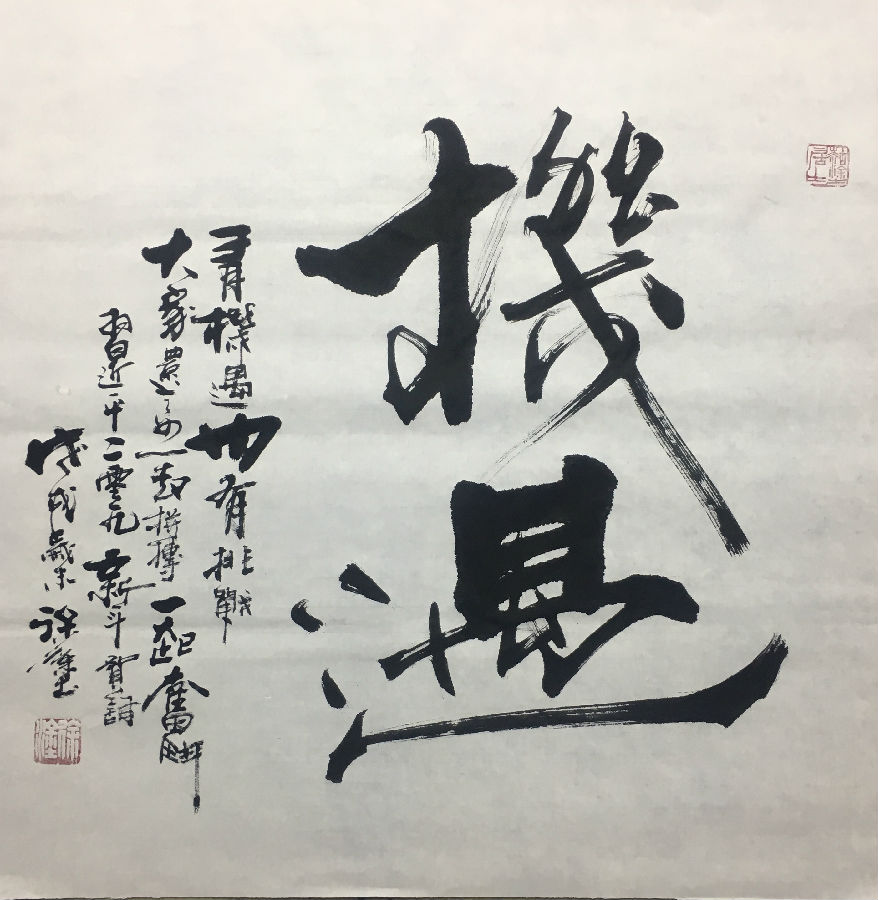 機遇
有機遇也有挑戰
大家還要一起拼搏一起奮鬥
習近平二零一九新年賀詞
戊戌歲末